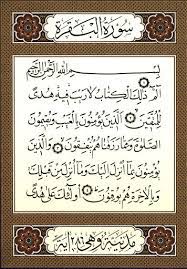 سورة البقرة
بسم الله الرحمن الرحيم
الم ۝ ذلك الكتاب لا ريب فيه هدى
للمتقين ۝ الذين يؤمنون بالغيب ويقيمون
الصلوة ومما رزقناهم ينفقون ۝ والذين
يؤمنون بما أنزل إليك وما أنزل من قبلك
وبالآخرة هم يوقنون ۝ أولئك على هدى
مدنية وهي آية